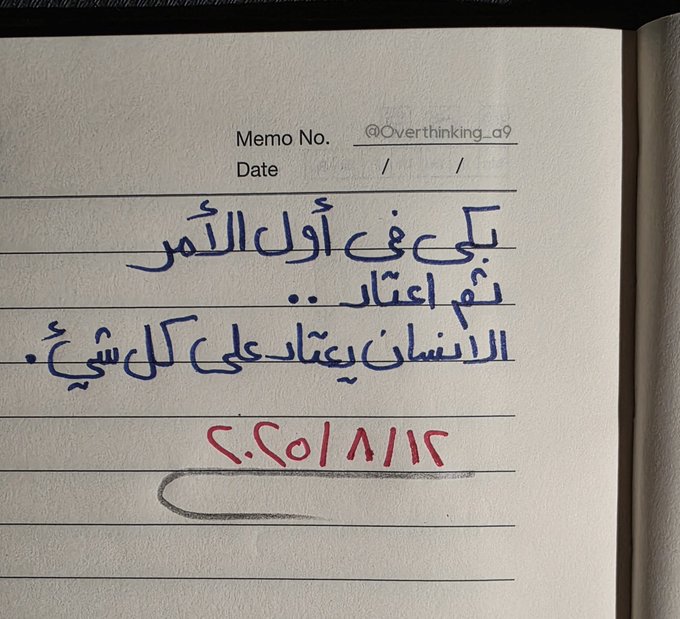 Memo No. @Overthinking_a9
Date / /
بكى فى أول الأمر
ثم اعتاد ..
الانسان يعتاد على كل شيئ.
٢٠٢٥/٨/١٢